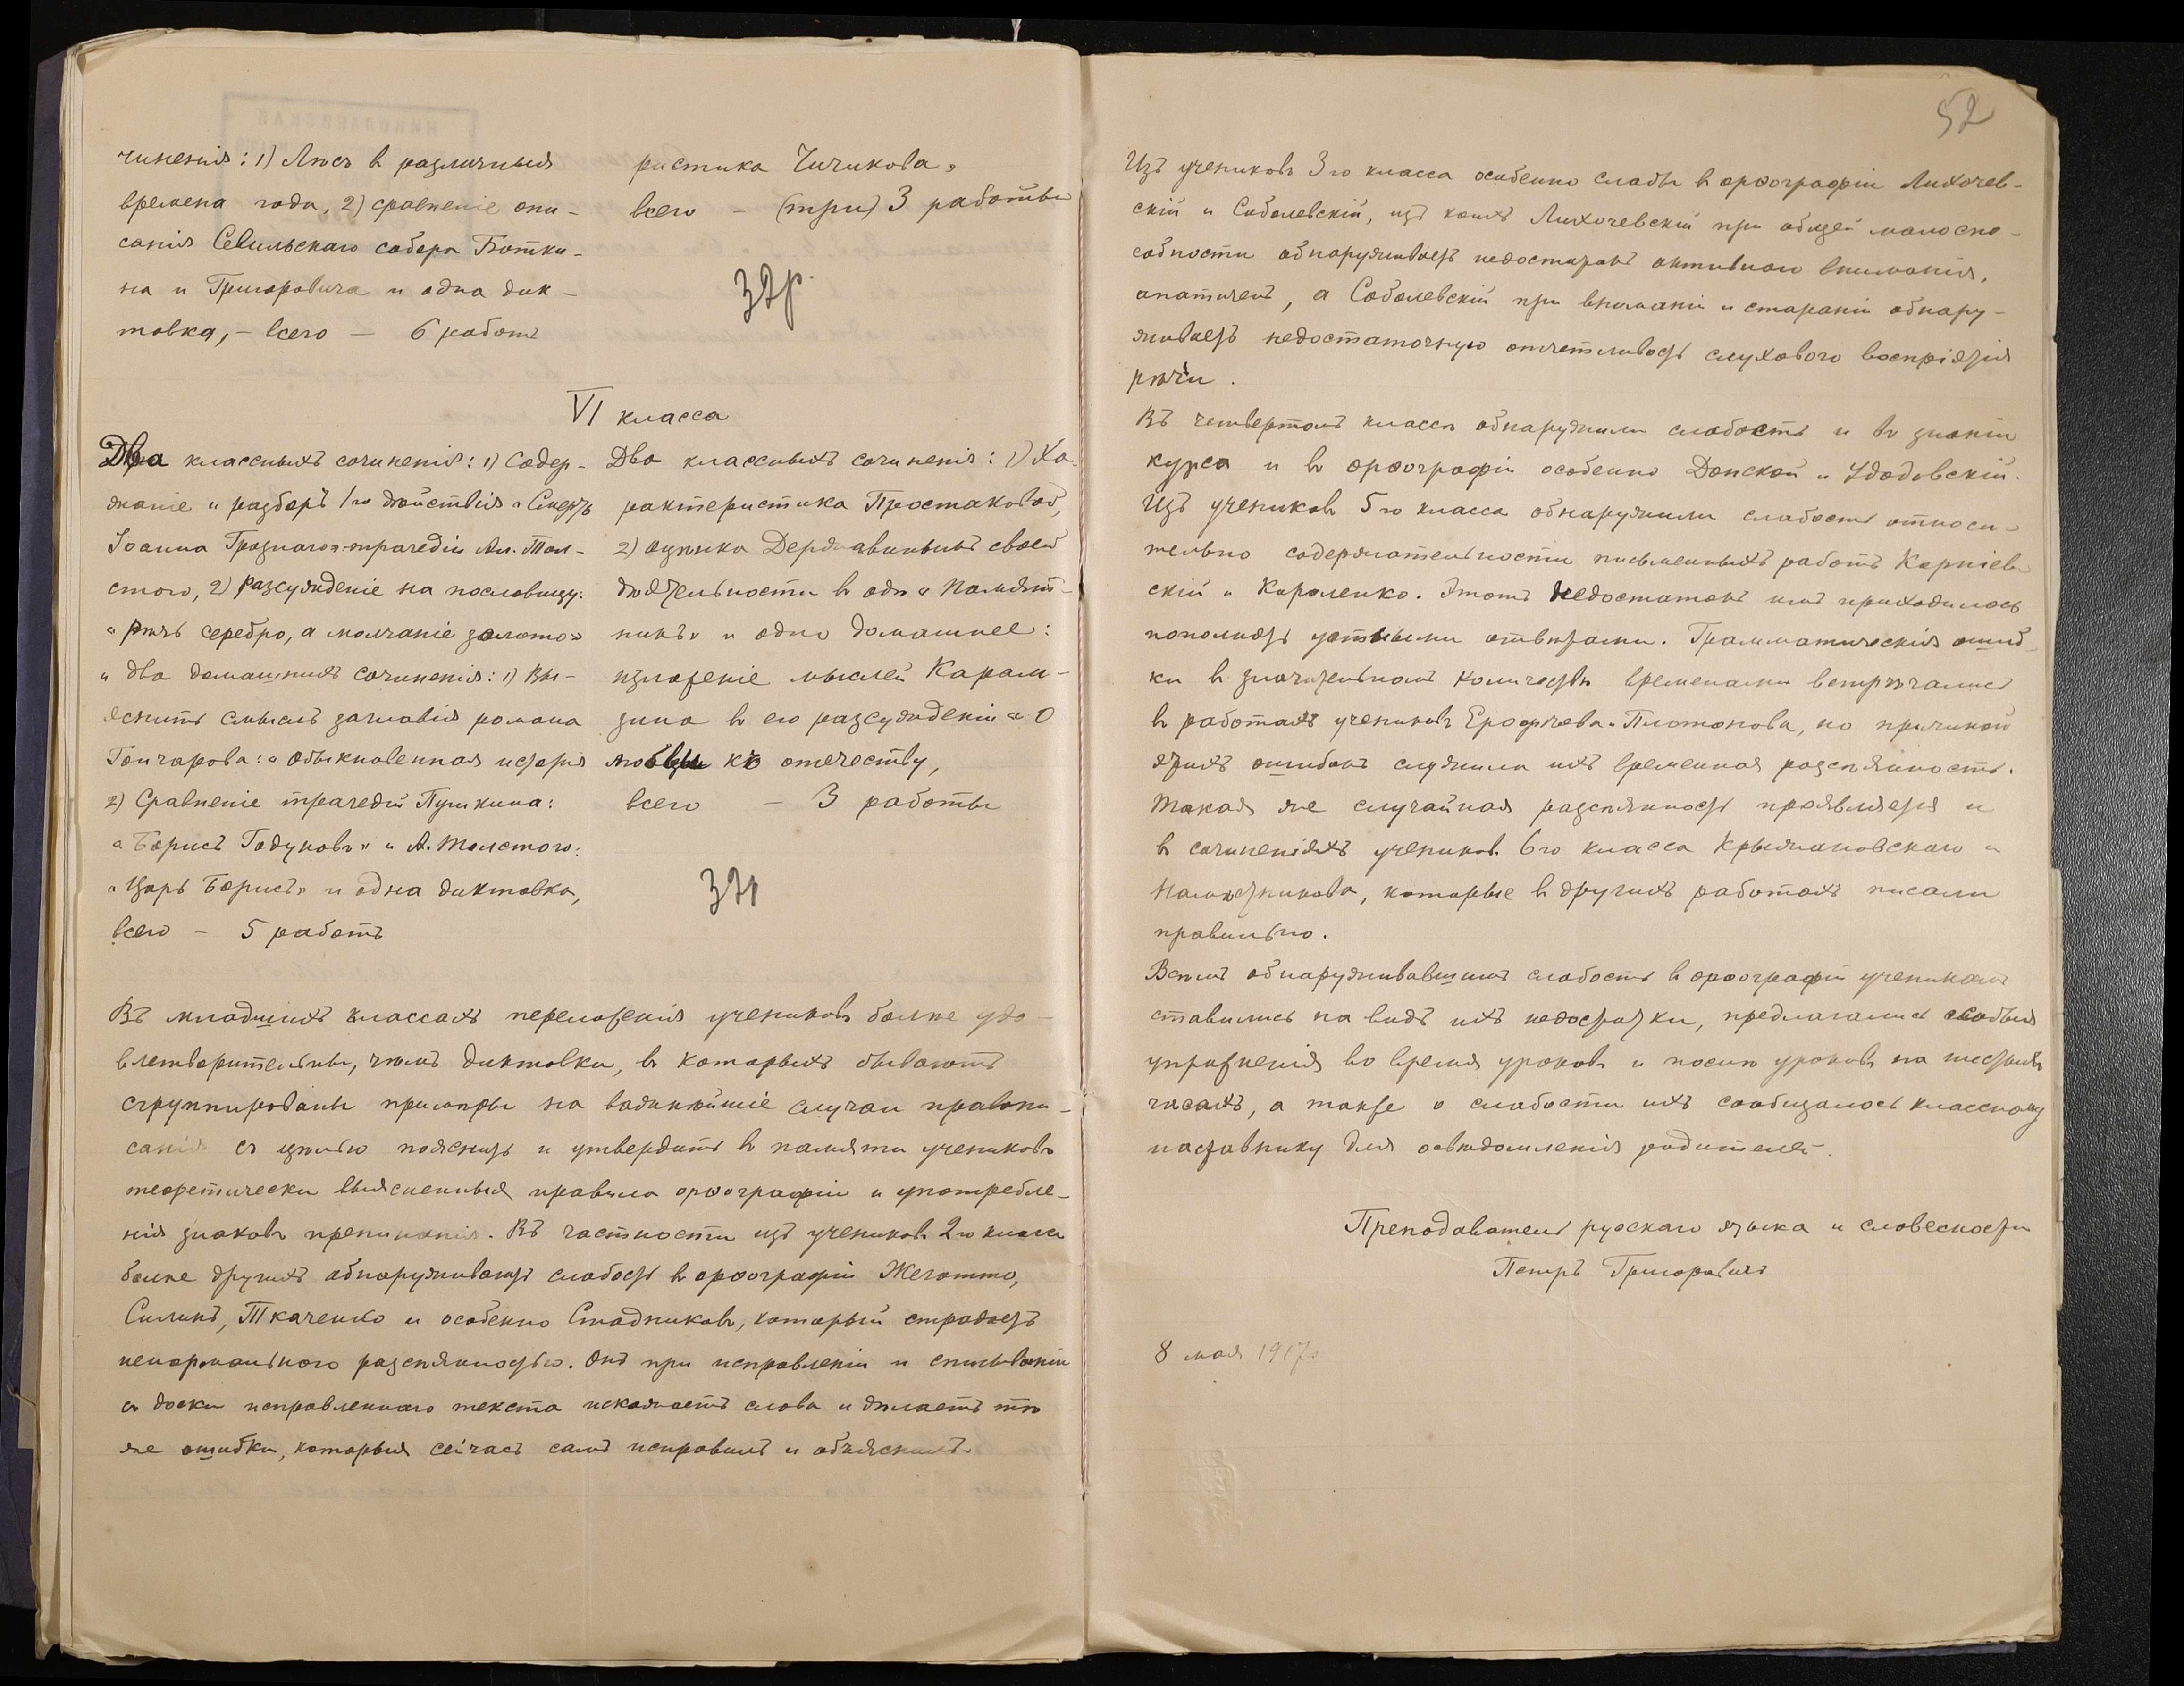 чиненія: 1) Лѣсъ въ различныя
времена года, 2) сравненіе опи-
санія Севильскаго собора Ботки-
на и Григоровича и одна дик-
товка, – всего — 6 работъ
ристика Чичикова.
всего — (три) 3 работы
VI класса
Два классныхъ сочиненія: 1) Содер-
жаніе и разборъ 1го дѣйствія "Смерть
Іоанна Грознаго" трагедіи Ал. Тол-
стого, 2) Разсужденіе на пословицу:
"рѣчь серебро, а молчаніе золото"
и два домашнихъ сочиненія: 1) Вы-
яснить смыслъ заглавія романа
Гончарова: "Обыкновенная исторія
2) Сравненіе трагедій Пушкина:
"Борисъ Годуновъ" и А. Толстого:
"Царь Борисъ" и одна диктовка,
всего – 5 работъ
Два классныхъ сочиненія: 1) Ха-
рактеристика Простаковой,
2) оцѣнка Державинымъ своей
дѣятельности въ одѣ "Памят-
никъ" и одно домашнее:
изложеніе мыслей Карам-
зина въ его разсужденіи "О
любви къ отечеству,
всего — 3 работы
Въ младшихъ классахъ переложенія учениковъ болѣе удо-
влетворительны, чѣмъ диктовки, въ которыхъ бываютъ
сгруппированы примѣры на важнѣйшіе случаи правопи-
санія съ цѣлью пояснить и утвердить въ памяти учениковъ
теоретически выясненныя правила орѳографіи и употребле-
нія знаковъ препинанія. Въ частности изъ учениковъ 2го класса
болѣе другихъ обнаруживаютъ слабость въ орѳографіи Жеготто,
Силинъ, Ткаченко и особенно Стадниковъ, который страдаетъ
ненормальною разсѣянностью. Онъ при исправленіи и списываніи
съ доски исправленнаго текста искажаетъ слова и дѣлаетъ тѣ
же ошибки, которыя сейчасъ самъ исправилъ и объяснилъ.
52
Изъ учениковъ 3го класса особенно слабы въ орѳографіи Лихочев-
скій и Соболевскій, изъ коихъ Лихочевскій при общей малоспо-
собности обнаруживаетъ недостатокъ активнаго вниманія,
апатиченъ, а Соболевскій при вниманіи и стараніи обнару-
живаетъ недостаточную отчетливость слухового воспріятія
рѣчи.
Въ четвертомъ классѣ обнаружили слабость и въ знаніи
курса и въ орѳографіи особенно Донской и Удодовскій.
Изъ учениковъ 5го класса обнаружили слабость относи-
тельно содержательности письменныхъ работъ Корніев-
скій и Короленко. Этотъ недостатокъ имъ приходилось
пополнять устными отвѣтами. Грамматическія ошиб-
ки въ значительномъ количествѣ временами встрѣчались
въ работахъ учениковъ Ерофѣева и Платонова, но причиной
этихъ ошибокъ служила ихъ временная разсѣянность.
Такая же случайная разсѣянность проявляется и
въ сочиненіяхъ учениковъ 6го класса Крыжановскаго и
которые въ другихъ работахъ писали
правильно.
Всѣмъ обнаруживавшимъ слабость въ орѳографіи ученикамъ
ставились на видъ ихъ недостатки, предлагались особыя
упражненія во время уроковъ и послѣ уроковъ на шестыхъ
часахъ, а также о слабости ихъ сообщалось классному
наставнику для освѣдомленія родителей.
Преподаватель русскаго языка и словесности
Петръ Григоровичъ
8 мая 1917